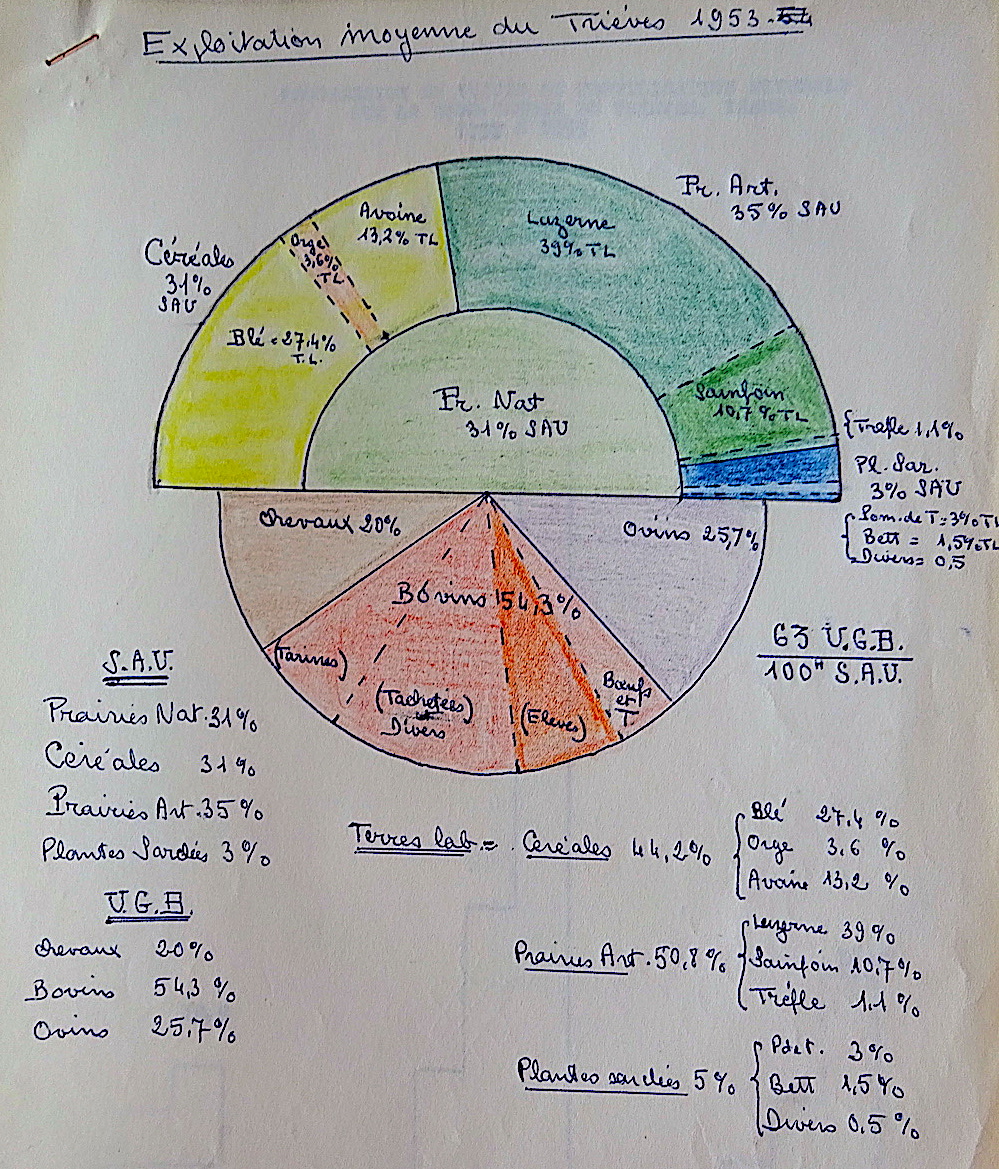 Exploitation moyenne du Trièves 1953-54
Pr. Art.
35% SAU
Luzerne
39% TL
Avoine
13,2% TL
Orge
3,6%
TL
Céréales
31%
SAU
Blé = 27,4%
T.L.
Pr. Nat
31% SAU
Sainfoin
10,7 % TL
Trèfle 1,1%
Pl. Sar.
3% SAU
Pom. de T = 3% TL
Bett = 1,5% TL
Divers = 0,5
Chevaux 20%
Ovins 25,7%
Bovins 54,3%
(Tarines)
(Tachetées)
et
Divers
(Elèves)
Bœufs
et
T
63 U.G.B.
100H S.A.U.
S.A.U.
Prairies Nat. 31%
Céréales 31%
Prairies Art. 35%
Plantes Sarclées 3%
U.G.B.
Chevaux 20%
Bovins 54,3 %
Ovins 25,7%
Terres lab. = . Céréales 44,2%
Blé 27,4 %
Orge 3,6 %
Avoine 13,2 %
Prairies Art. 50,8%
Luzerne 39%
Sainfoin 10,7%
Trèfle 1,1 %
Plantes sarclées 5%
P de t. 3%
Bett 1,5%
Divers 0,5 %